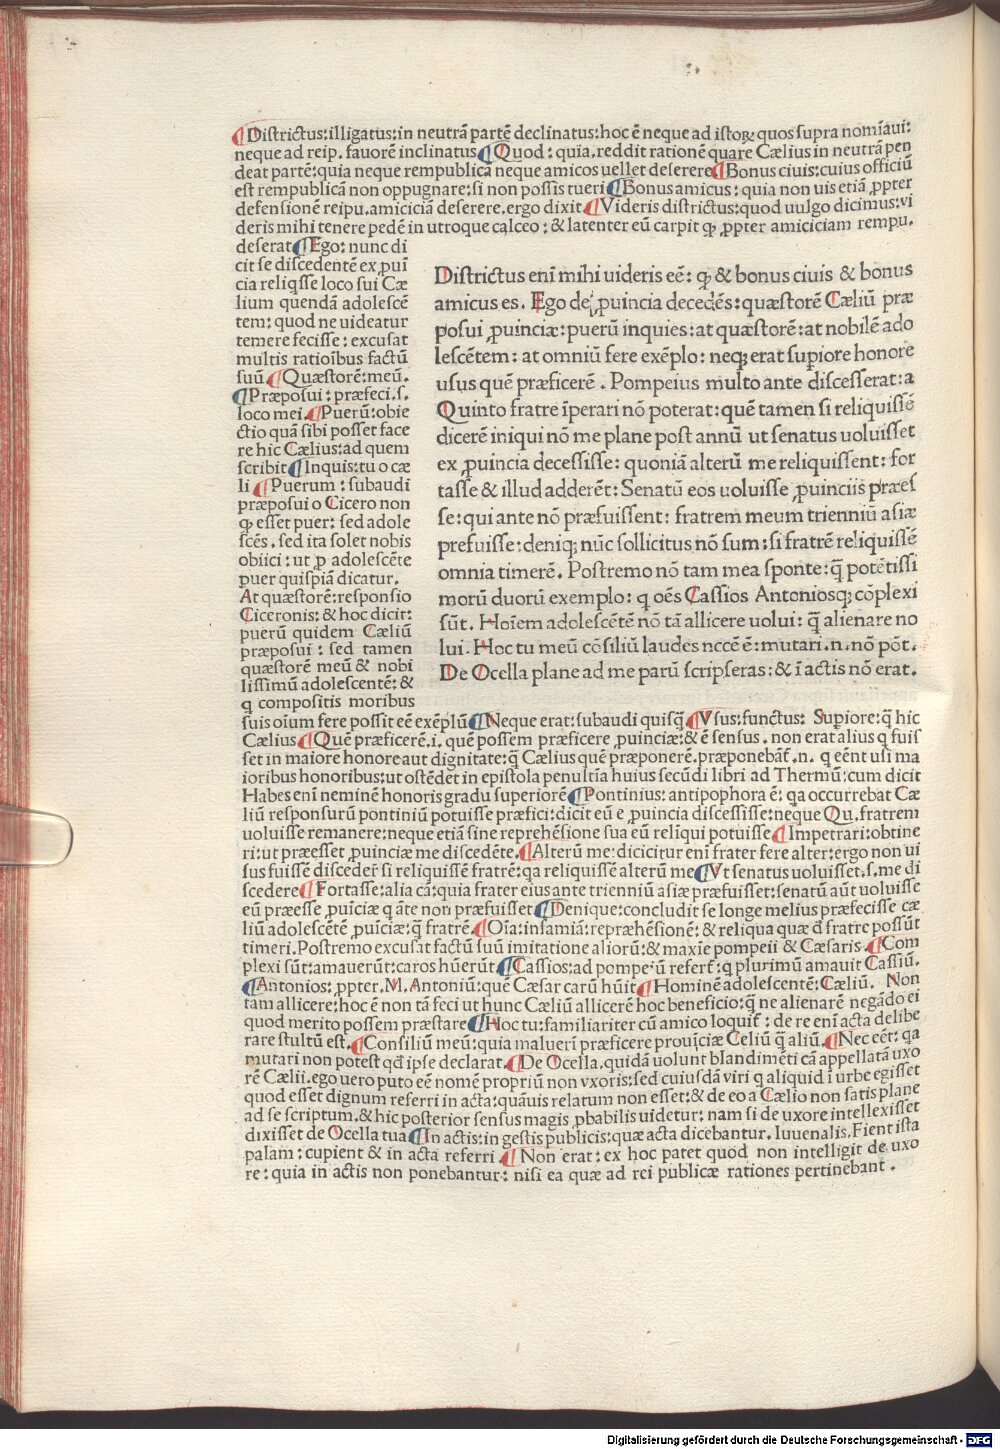 ¶Districtus:illigatus:in neutrã partẽ declinatus:hoc ẽ neque ad istoꝝ quos supra nomĩaui:
neque ad reip. fauorẽ inclinatus¶Quod: quia.reddit rationẽ quare Cælius in neutrã pen
deat partẽ:quia neque rempublicã neque amicos uellet deserere¶Bonus ciuis:cuius officiũ
est rempublicã non oppugnare:si non possis tueri¶Bonus amicus: quia non uis etiã ꝓpter
defensionẽ reipu.amiciciã deserere.ergo dixit¶Videris districtus:quod uulgo dicimus:vi
deris mihi tenere pedẽ in utroque calceo: & latenter eũ carpit ꝙ ꝓpter amiciciam rempu.
deserat¶Ego: nunc di
cit se discedentẽ ex ꝓuĩ
cia reliq̃sse loco sui Cæ
lium quendã adolescẽ
tem: quod ne uideatur
temere fecisse: excusat
multis ratioĩbus factũ
suũ¶Quæstorẽ:meũ.
¶Præposui: præfeci.s.
loco mei.¶Puerũ:obie
ctio quã sibi posset face
re hic Cælius:ad quem
scribit¶Inquis:tu o cæ
li ¶Puerum: subaudi
præposui o Cicero non
ꝙ esset puer: sed adole
scẽs. sed ita solet nobis
obiici: ut ꝓ adolescẽte
puer quispiã dicatur.
At quæstorẽ:responsio
Ciceronis: & hoc dicit:
puerũ quidem Cæliũ
præposui: sed tamen
quæstorẽ meũ & nobi
lissimũ adolescentẽ: &
q compositis moribus
Districtus enĩ mihi uideris eẽ: ꝙ & bonus ciuis & bonus
amicus es. Ego de ꝓuincia decedẽs:quæstorẽ Cæliũ præ
posui ꝓuinciæ:puerũ inquies:at quæstorẽ:at nobilẽ ado
lescẽtem: at omniũ fere exẽplo: neqꝫ erat supiore honore
usus quẽ præficerẽ. Pompeius multo ante discesserat:a
Quinto fratre ĩperari nõ poterat:quẽ tamen si reliquissẽ
dicerẽ iniqui nõ me plane post annũ ut senatus uoluisset
ex ꝓuincia decessisse: quoniã alterũ me reliquissent: for
tasse & illud adderẽt: Senatũ eos uoluisse ꝓuinciis præes
se:qui ante nõ præfuissent: fratrem meum trienniũ asiæ
prefuisse:deniqꝫ nũc sollicitus nõ sum:si fratrẽ reliquissẽ
omnia timerẽ. Postremo nõ tam mea sponte:q̃ potẽtissi
morũ duorũ exemplo: q oẽs Cassios Antoniosqꝫ cõplexi
sũt. Hoĩem adolescẽtẽ nõ tã allicere uolui: q̃ alienare no
lui. Hoc tu meũ cõsiliũ laudes nccẽ ẽ: mutari.n.nõ põt.
De Ocella plane ad me parũ scripseras: & ĩ actis nõ erat.
suis oĩum fere possit eẽ exẽplũ¶Neque erat:subaudi quisq̃¶Vsus:functus: Supiore:q̃ hic
Cælius¶Quẽ præficerẽ.i. quẽ possem præficere ꝓuinciæ:& ẽ sensus. non erat alius q fuis
set in maiore honore aut dignitate:q̃ Cælius quẽ præponerẽ.præponebãt.n. q eẽnt usi ma
ioribus honoribus:ut ostẽdẽt in epistola penultĩa huius secũdi libri ad Thermũ:cum dicit
Habes enĩ neminẽ honoris gradu superiorẽ¶Pontinius: antipophora ẽ: qa occurrebat Cæ
liũ responsurũ pontiniũ potuisse præfici:dicit eũ e ꝓuincia discessisse:neque Qu.fratrem
uoluisse remanere:neque etiã sine reprehẽsione sua eũ reliqui potuisse¶Impetrari:obtine
ri:ut præesset ꝓuinciæ me discedẽte.¶Alterũ me:dicicitur enĩ frater fere alter:ergo non ui
sus fuissẽ disceder̃ si reliquissẽ fratrẽ:qa reliquissẽ alterũ me¶Vt senatus uoluisset.s.me di
scedere¶Fortasse:alia cã:quia frater eius ante trienniũ asiæ præfuisset:senatũ aũt uoluisse
eũ præesse ꝓuĩciæ q ãte non præfuisset¶Denique:concludit se longe melius præfecisse cæ
liũ adolescẽtẽ ꝓuiciæ:q̃ fratrẽ.¶Oĩa:infamiã:repræhẽsionẽ: & reliqua quæ đ fratre possũt
timeri.Postremo excusat factũ suũ imitatione aliorũ:& maxĩe pompeii & Cæsaris.¶Com
plexi sũt:amauerũt:caros hũerũt¶Cassios:ad pompeiũ refert̃:q plurimũ amauit Cassiũ.
¶Antonios:ꝓpter.M.Antoniũ:quẽ Cæsar carũ hũit¶Hominẽ adolescentẽ:Cæliũ. Non
tam allicere:hoc ẽ non tã feci ut hunc Cæliũ allicerẽ hoc beneficio:q̃ ne alienarẽ negãdo ei
quod merito possem præstare¶Hoc tu:familiariter cũ amico loquit̃: de re enĩ acta delibe
rare stultũ est.¶Consiliũ meũ:quia maluerĩ præficere prouĩciæ Celiũ q̃ aliũ.¶Nec eẽt: qa
mutari non potest qđ ipse declarat.¶De Ocella.quidã uolunt blandimẽti cã appellatã uxo
rẽ Cælii.ego uero puto eẽ nomẽ propriũ non vxoris:sed cuiusdã viri q aliquid ĩ urbe egisset
quod esset dignum referri in acta:quãuis relatum non esset:& de eo a Cælio non satis plane
ad se scriptum.& hic posterior sensus magis ꝓbabilis uidetur: nam si de uxore intellexisset
dixisset de Ocella tua¶In actis:in gestis publicis:quæ acta dicebantur.Iuuenalis.Fient ista
palam:cupient & in acta referri.¶Non erat:ex hoc patet quod non intelligit de uxo
re: quia in actis non ponebantur: nisi ea quæ ad rei publicæ rationes pertinebant.
Digitalisierung gefördert durch die Deutsche Forschungsgemeinschaft - DFG